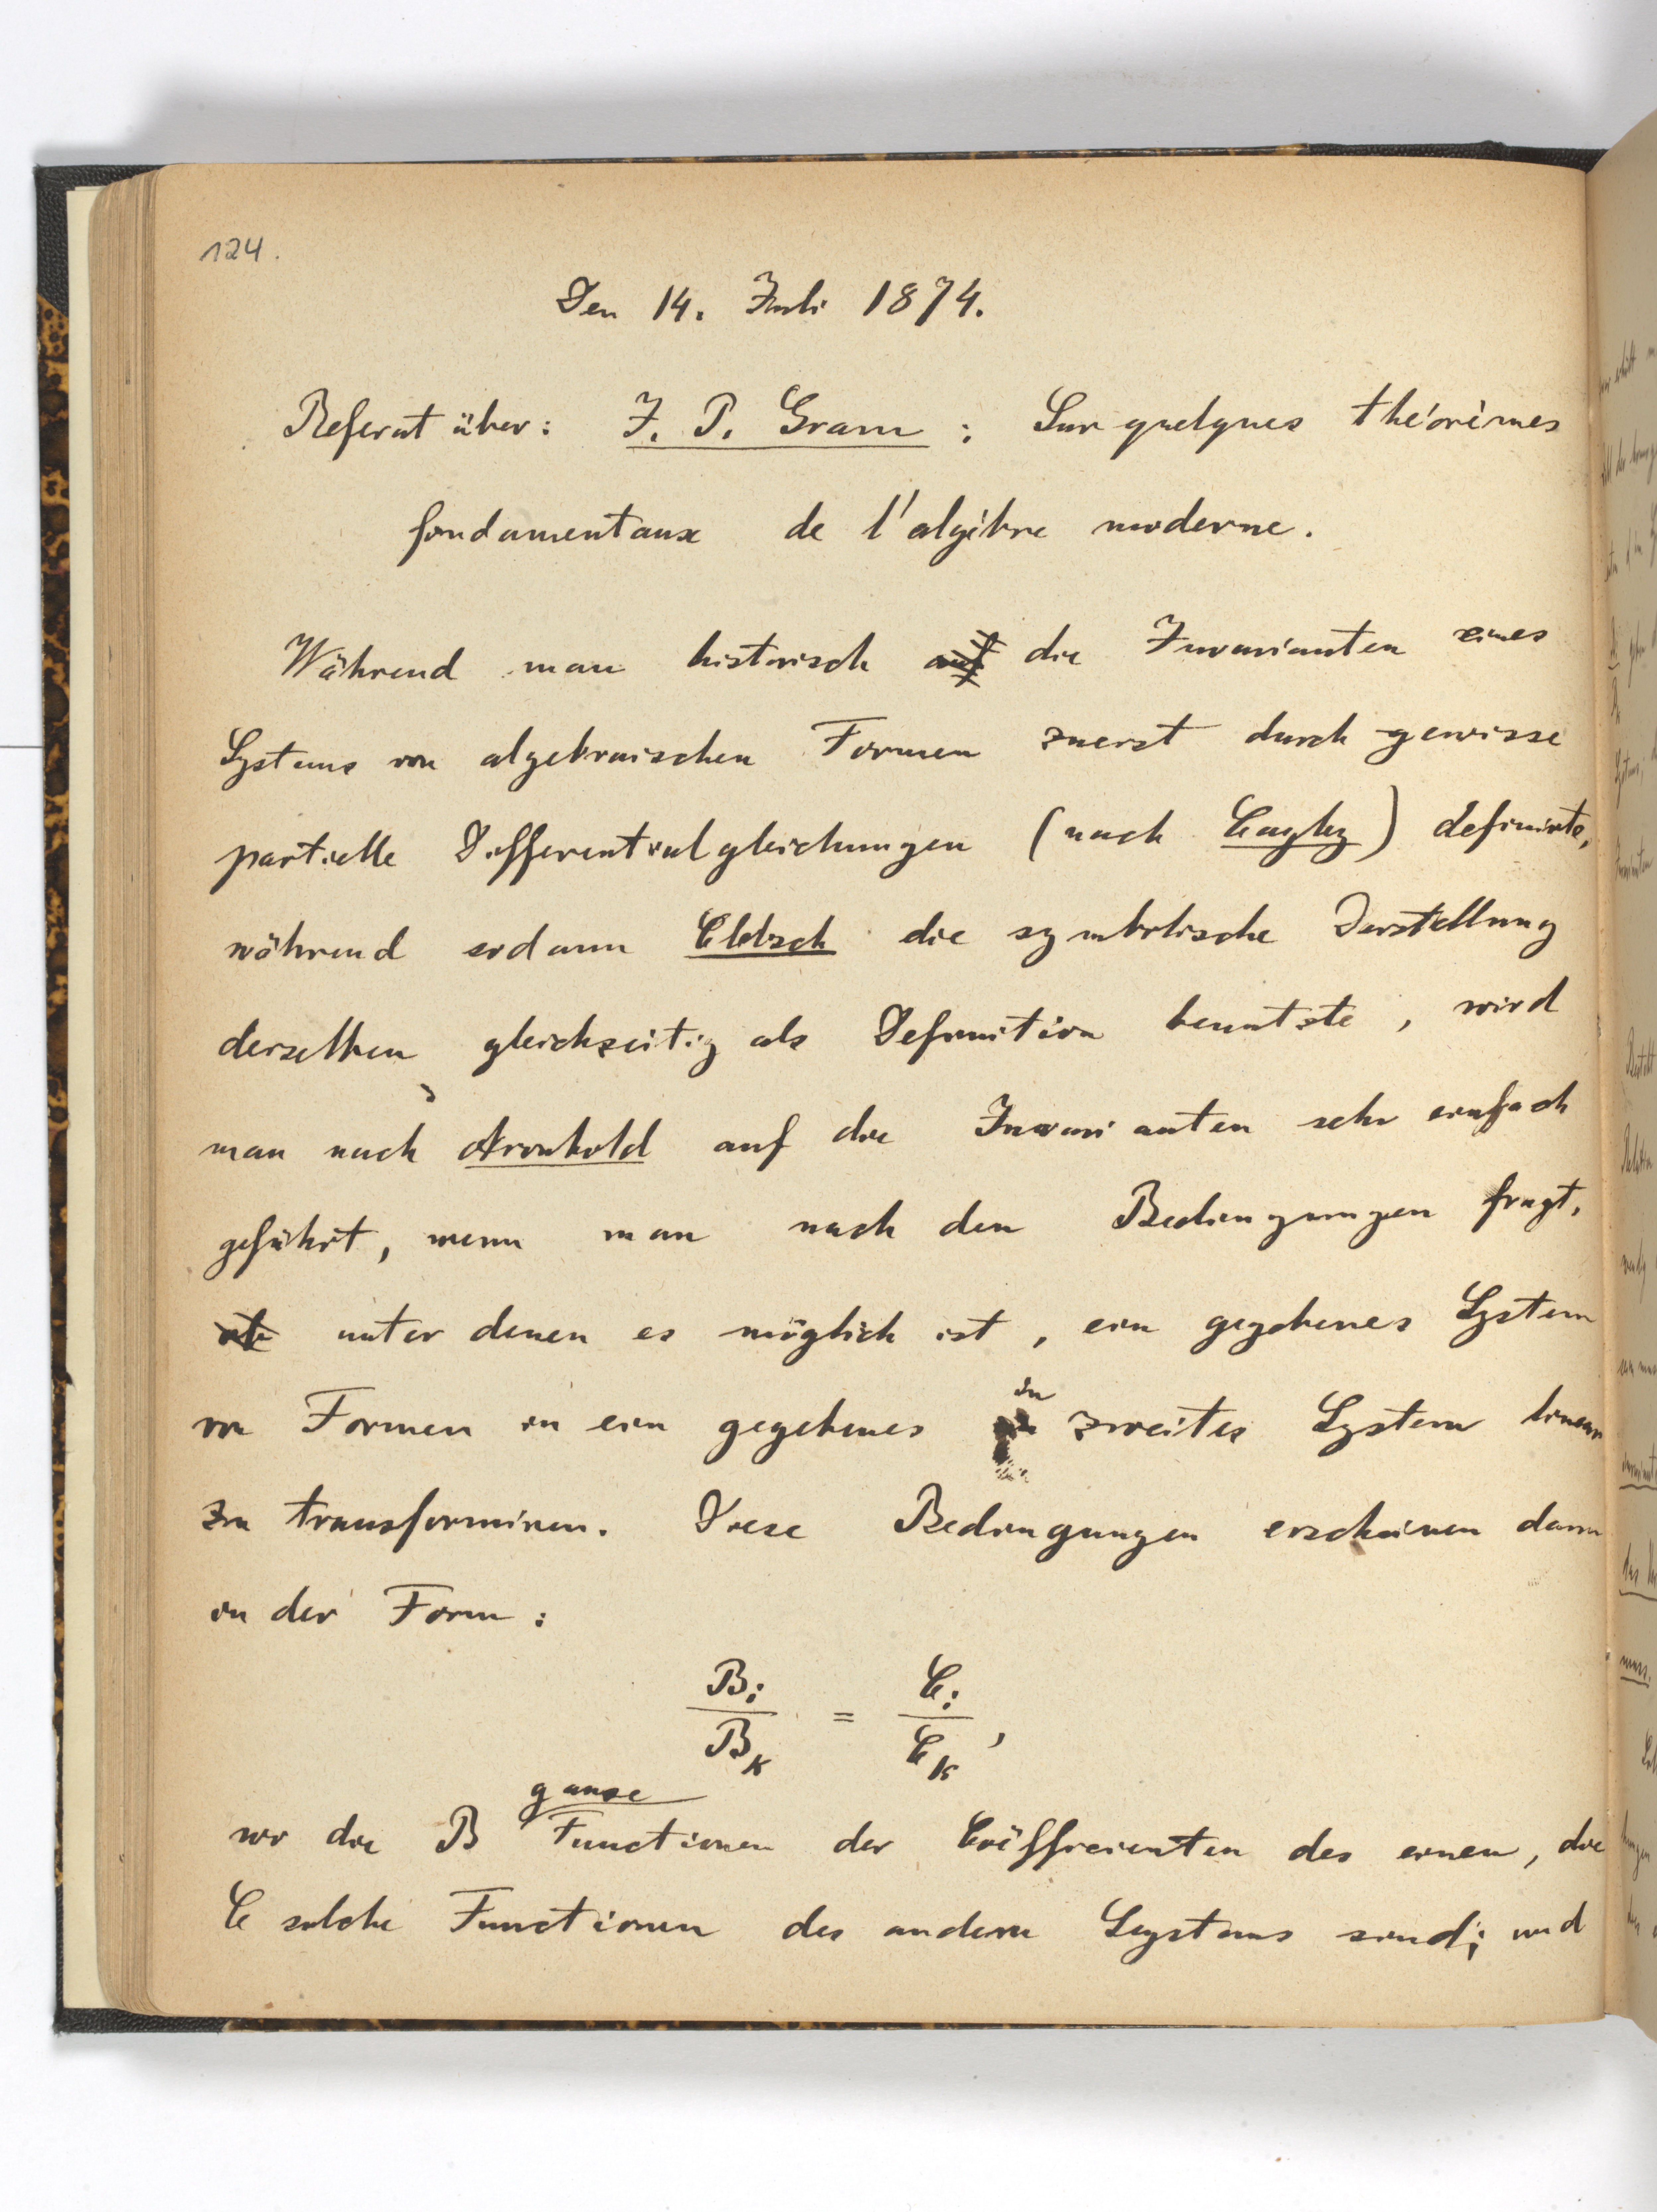 124.
Den 14. Juli 1874.
Referat über: J. P. Gram : Sur quelques théorèmes
fondamentaux de l'algèbre moderne.
Während man historisch auf die Invarianten eines
Systems von algebraischen Formen zuerst durch gewisse
partielle Differentialgleichungen (nach Cayley) definirte,
während sodann Clebsch die symbolische Darstellung
derselben gleichzeitig als Definition benutzte, wird
man nach Aronhold auf die Invarianten sehr einfach
geführt, wenn man nach den Bedingungen fragt,
ob unter denen es möglich ist, ein gegebenes System
von Formen in ein gegebenes in zweites System linear
zu transformiren. Diese Bedingungen erscheinen dann
in der Form:
B_i / B_k = C_i / C_k,
ganze
wo die B Functionen der Coëfficienten des einen, die
C solche Functionen des andern Systems sind; und